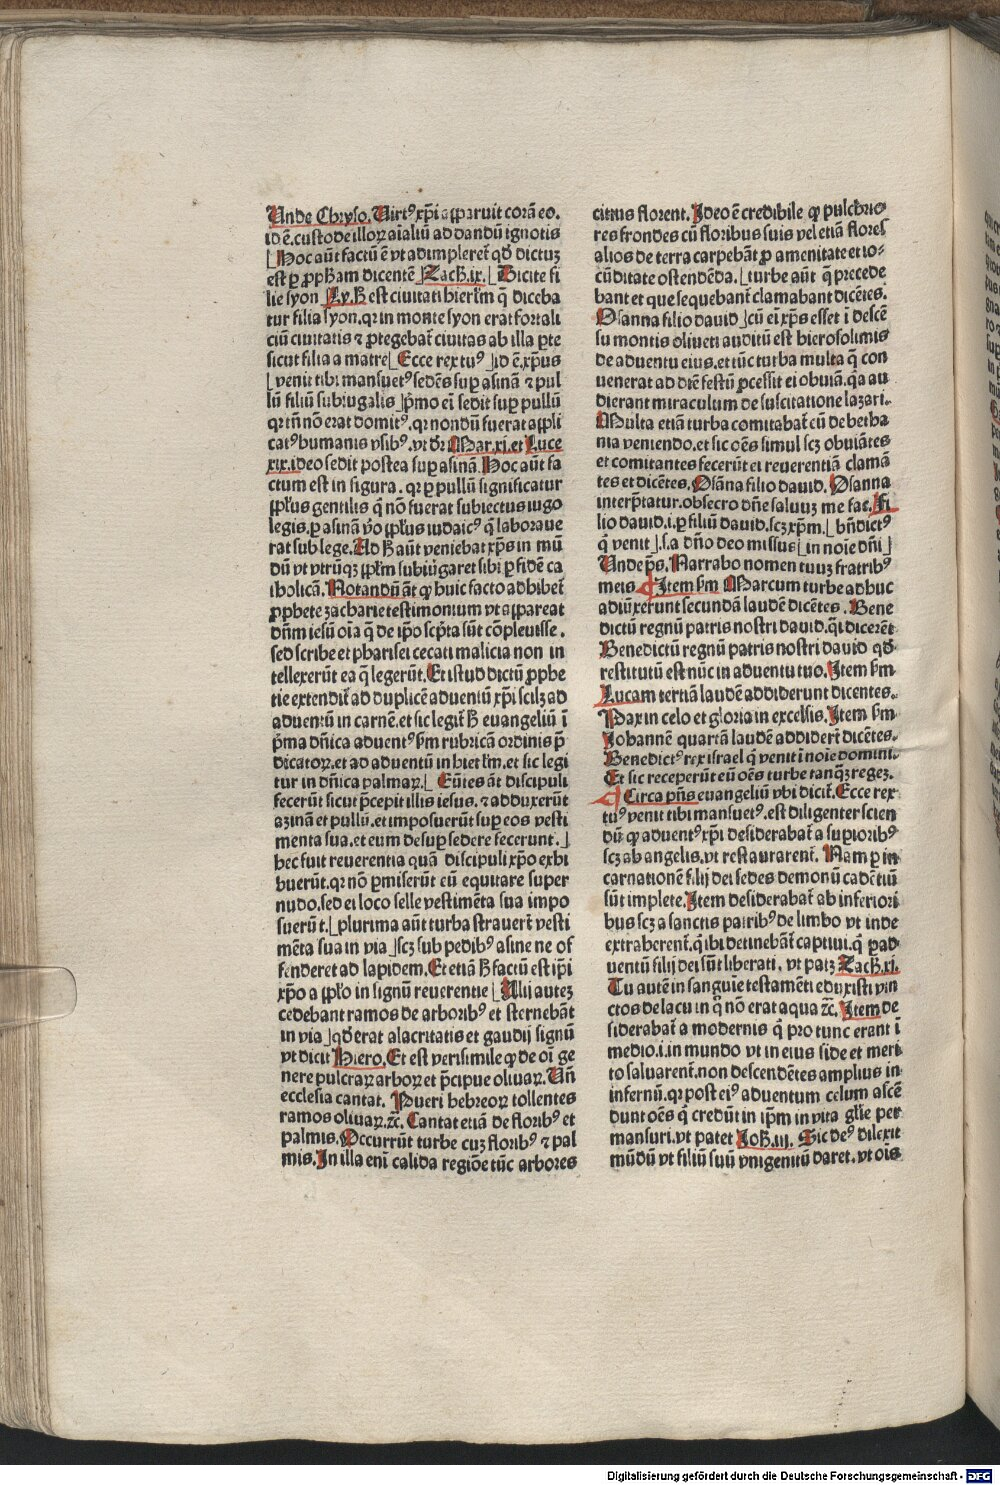 Unde Chryso. Uirtꝰ xp̄i apparuit corā eo.
id ē. custode illoꝝ aīaliū ad dandū ignotis
[Hoc aūt factū ē vt adimpleret᷑ qd̄ dictuꝫ
est ꝑ ꝓpham dicentē] Zach.ix. [Dicite fi
lie syon] Ly. h̄ est ciuitati hierłm q̄ diceba
tur filia syon. qꝛ in monte syon erat fortali
ciū ciuitatis ⁊ ꝓtegebat᷑ ciuitas ab illa ꝑte
sicut filia a matre [Ecce rex tuꝰ] id ē. xp̄us
[venit tibi mansuetꝰ sedēs suꝑ asinā ⁊ pul
lū filiū subiugalis] p̄mo eī sedit suꝑ pullū
qꝛ tn̄ nō erat domitꝰ. qꝛ nondū fuerat appli
catꝰ humanis vsibꝰ. vt dꝛ Mar.xi. et Luce
xix. ideo sedit postea suꝑ asinā. Hoc aūt fa
ctum est in figura. qꝛ ꝑ pullū significatur
ppłus gentilis q̄ nō fuerat subiectus iugo
legis. ꝑ asinā v̄o ppłus iudaicꝰ q̄ laboraue
rat sub lege. Ad h̄ aūt veniebat xp̄s in mū
dū vt vtrūqꝫ ppłm subiūgaret sibi ꝑ fidē ca
tholicā. Notandū āt ꝙ huic facto adhibet᷑
ꝓphete zacharie testimonium vt appareat
dn̄m iesū oīa q̄ de ip̄o scp̄ta sūt cōpleuisse.
sed scribe et pharisei cecati malicia non in
tellexerūt ea q̄ legerūt. Et istud dictū ꝓphe
tie extendit᷑ ad duplicē aduentū xp̄i scilꝫ ad
aduentū in carnē. et sic legit᷑ h̄ euangeliū ī
p̄ma dn̄ica aduentꝰ s̄m rubricā ordinis p̄
dicatoꝝ. et ad aduentū in hierłm. et sic legi
tur in dn̄ica palmaꝝ. [Eūtes āt discipuli
fecerūt sicut p̄cepit illis iesus. ⁊ adduxerūt
azinā et pullū. et imposuerūt suꝑ eos vesti
menta sua. et eum desuꝑ sedere fecerunt.]
hec fuit reuerentia quā discipuli xp̄o exhi
buerūt. qꝛ nō ꝑmiserūt eū equitare super
nudo. sed ei loco selle vestimēta sua impo
suerūt. [plurima aūt turba strauert᷑ vesti
mēta sua in via] scꝫ sub pedibꝰ asine ne of
fenderet ad lapidem. Et etiā h̄ factū est ip̄i
xp̄o a ppło in signū reuerentie [Alij auteꝫ
cedebant ramos de arboribꝰ et sternebāt
in via] qd̄ erat alacritatis et gaudij signū
vt dicit Hiero. Et est verisimile ꝙ de oī ge
nere pulcraꝝ arboꝝ et p̄cipue oliuaꝝ. Uñ
ecclesia cantat. Pueri hebreoꝝ tollentes
ramos oliuaꝝ. ⁊c̄. Cantat etiā de floribꝰ et
palmis. Occurrūt turbe cuꝫ floribꝰ ⁊ pal
mis. In illa enī calida regiōe tūc arbores
citius florent. Ideo ē credibile ꝙ pulchrio
res frondes cū floribus suis vel etiā flores
alios de terra carpebāt᷑ ꝓ amenitate et io-
cūditate ostendēda. [turbe aūt q̄ precede
bant et que sequebant᷑ clamabant dicētes.
Osanna filio dauid] cū eī xp̄s esset ī descē
su montis oliueti auditū est hierosolimis
de aduentu eius. et tūc turba multa q̄ con
uenerat ad diē festū ꝓcessit ei obuiā. qꝛ au
dierant miraculum de suscitatione lazari.
Multa etiā turba comitabat᷑ cū de betha
nia veniendo. et sic oēs simul scꝫ obuiātes
et comitantes fecerūt ei reuerentiā clamā
tes et dicētes. Osāna filio dauid. Osanna
interp̄tatur. obsecro dn̄e saluuꝫ me fac. Fi
lio dauid. i. ꝑ filiū dauid. scꝫ xp̄m. [bn̄dictꝰ
q̄ venit]. s. a dn̄o deo missus [in noīe dn̄i]
Unde p̄s. Narrabo nomen tuuꝫ fratribꝰ
meis. ¶ Item s̄m Marcum turbe adhuc
adiūxerunt secundā laudē dicētes. Bene
dictū regnū patris nostri dauid. q̄si dicerēt
Benedictū regnū patris nostri dauid qd̄
restitutū est nūc in aduentu tuo. Item s̄m
Lucam tertiā laudē addiderunt dicentes.
Pax in celo et gloria in excelsis. Item s̄m
Johannē quartā laudē addidert᷑ dicētes.
Benedictꝰ rex israel q̄ venit ī noīe domini.
Et sic receperūt eū oēs turbe tanqꝫ regeꝫ.
¶ Circa p̄n̄s euangeliū vbi dicit᷑. Ecce rex
tuꝰ venit tibi mansuetꝰ. est diligenter scien
dū ꝙ aduentꝰ xp̄i desiderabat᷑ a suꝑioribꝰ
scꝫ ab angelis. vt restaurarent᷑. Nam ꝑ in
carnationē filij dei sedes demonū cadētiū
sūt implete. Item desiderabat᷑ ab inferiori
bus scꝫ a sanctis patribꝰ de limbo vt inde
extraherent᷑. q̄ ibi detinebāt᷑ captiui. q̄ ꝑ ad
uentū filij dei sūt liberati. vt patꝫ Zach.xi.
Tu autē in sanguīe testamēti eduxisti vin
ctos de lacu in q̄ nō erat aqua ⁊c̄. Item de
siderabat᷑ a modernis q̄ pro tunc erant ī
medio. i. in mundo vt in eius fide et meri
to saluarent᷑. non descendētes amplius in
infernū. qꝛ post eiꝰ aduentum celum ascē
dunt oēs q̄ credūt in ip̄m in vita głie per
mansuri. vt patet Joh.iij. Sic deꝰ dilexit
mūdū vt filiū suū vnigenitū daret. vt oīs
Digitalisierung gefördert durch die Deutsche Forschungsgemeinschaft - DFG